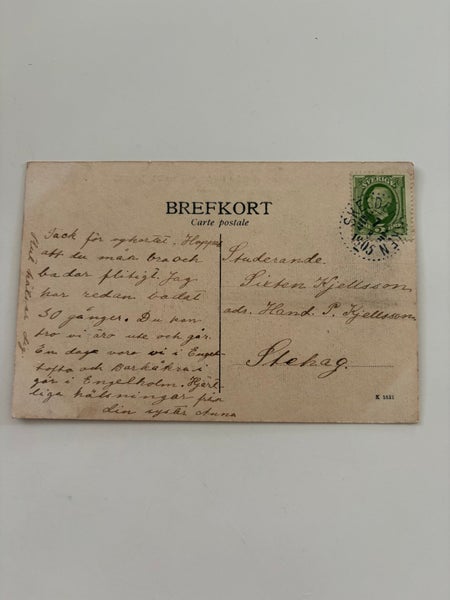 BREFKORT
Carte postale
Tack för vykortet. Hoppas
att du mår bra och
badar flitigt. Jag
har redan badat
30 gånger. Du kan
tro vi äro ute och går.
En dag voro vi i Engel-
tofta och Barkåkra i
går i Engelholm. Hjärt-
liga hälsningar från
din syster Anna
SVERIGE
1905
Studerande.
Sixten Kjellsson
adr. Hand. P. Kjellsson
Stehag.
K 1631